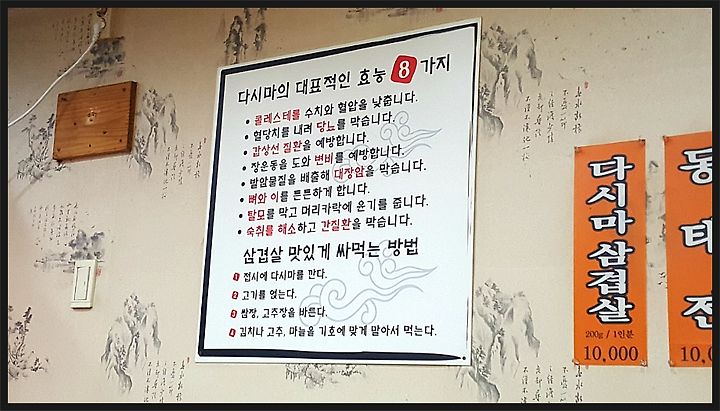 다시마의 대표적인 효능 8 가지
• 콜레스테롤 수치와 혈압을 낮춥니다.
• 혈당치를 내려 당뇨를 막습니다.
• 갑상선 질환을 예방합니다.
• 장운동을 도와 변비를 예방합니다.
• 발암물질을 배출해 대장암을 막습니다.
• 뼈와 이를 튼튼하게 합니다.
• 탈모를 막고 머리카락에 윤기를 줍니다.
• 숙취를 해소하고 간질환을 막습니다.
삼겹살 맛있게 싸먹는 방법
1 접시에 다시마를 깐다.
2 고기를 얹는다.
3 쌈장, 고추장을 바른다.
4 김치나 고추, 마늘을 기호에 맞게 맡아서 먹는다.
다시마삼겹살
200g / 1인분
10,000
동태전